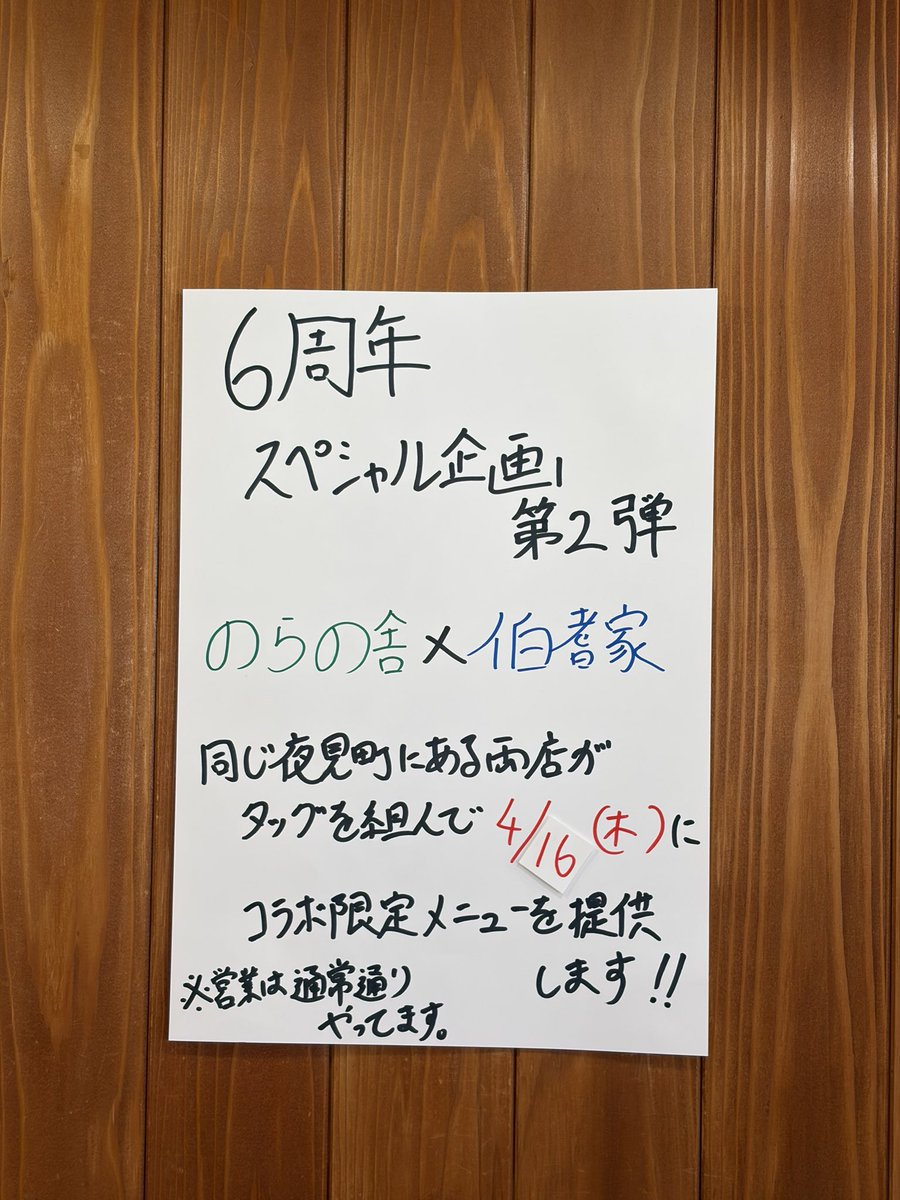 6周年
スペシャル企画
第2弾
のらの舎×伯耆家
同じ夜見町にある両店が
タッグを組んで 4/16(木)に
コラボ限定メニューを提供
します!!
※営業は通常通り
やってます。